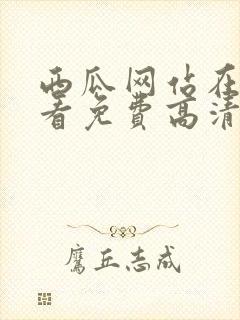 西瓜网占在
看免费高清
鹰丘志成